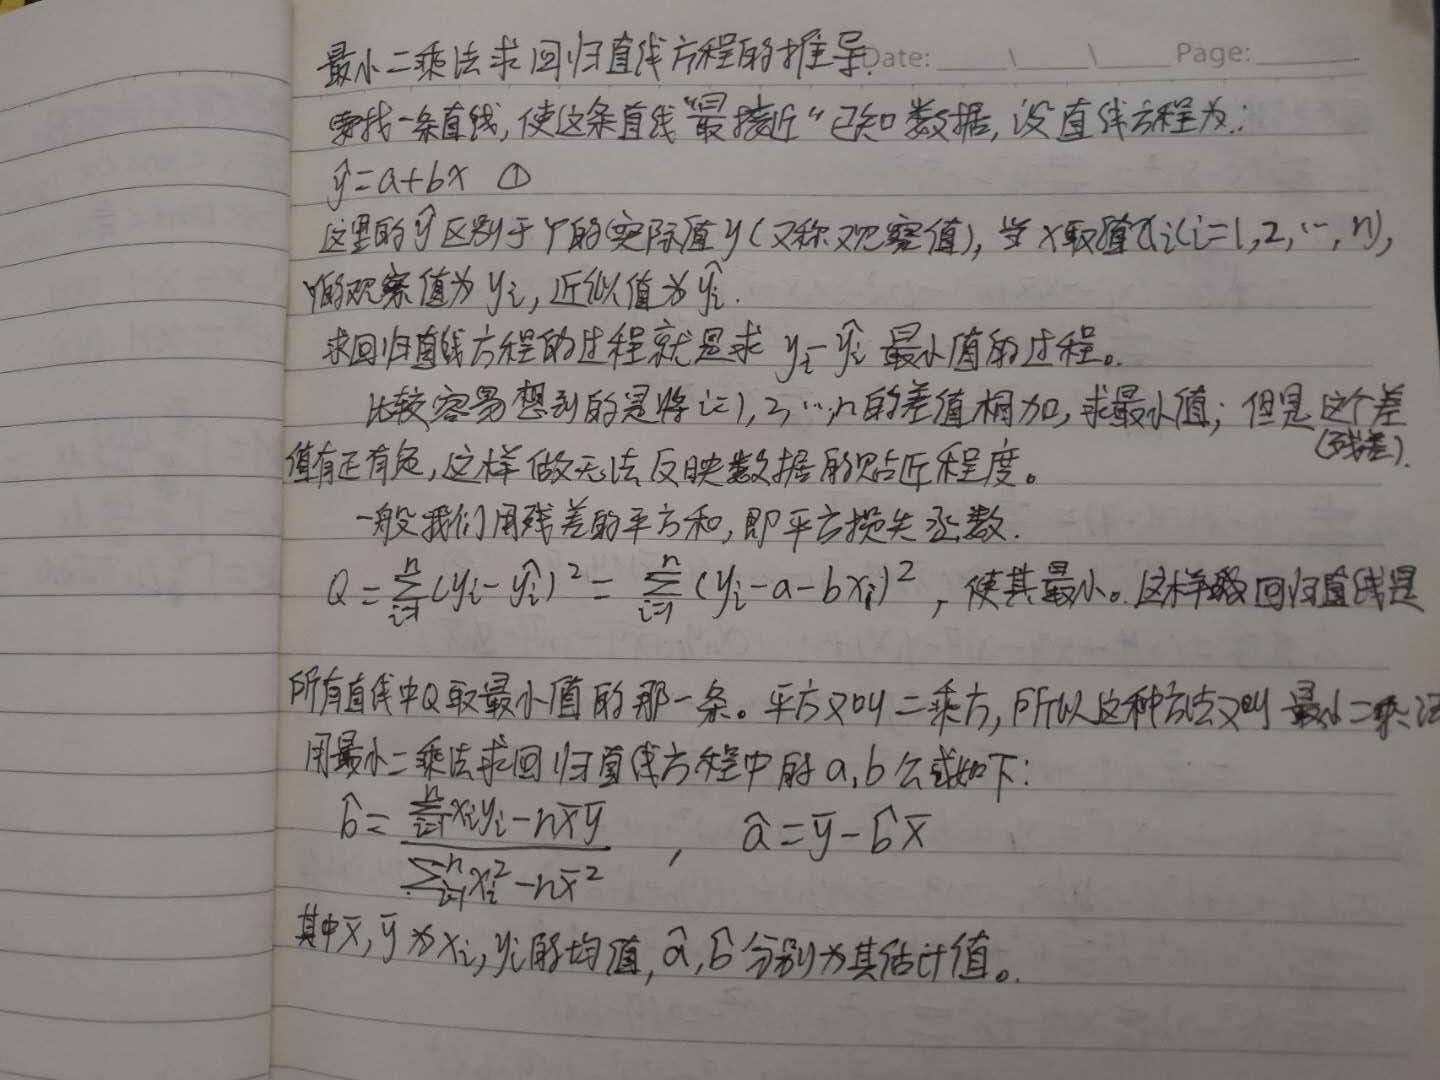 最小二乘法求回归直线方程的推导.
Date: ____\____\____ Page: ____
要找一条直线,使这条直线“最接近“已知数据,设直线方程为:
ŷ=a+bx ①
这里的ŷ区别于Y的实际值y(又称观察值),当x取值xi(i=1,2,…,n),
Y的观察值为yi,近似值为ŷi.
求回归直线方程的过程就是求 yi-ŷi 最小值的过程。
比较容易想到的是将i=1,2,…,n的差值相加,求最小值;但是这个差
(残差).
值有正有负,这样做无法反映数据的贴近程度。
一般我们用残差的平方和,即平方损失函数.
Q=∑ⁿᵢ₌₁(yi-ŷi)²=∑ⁿᵢ₌₁(yi-a-bxi)²,使其最小。这样 回归直线是
所有直线中Q取最小值的那一条。平方又叫二乘方,所以这种方法又叫最小二乘法
用最小二乘法求回归直线方程中的a,b公式如下:
b̂=(∑ⁿᵢ₌₁xiyi-nx̄ȳ)/(∑ⁿᵢ₌₁xi²-nx̄²), â=ȳ-b̂x̄
其中x̄,ȳ为xi,yi的均值,â,b̂分别为其估计值。